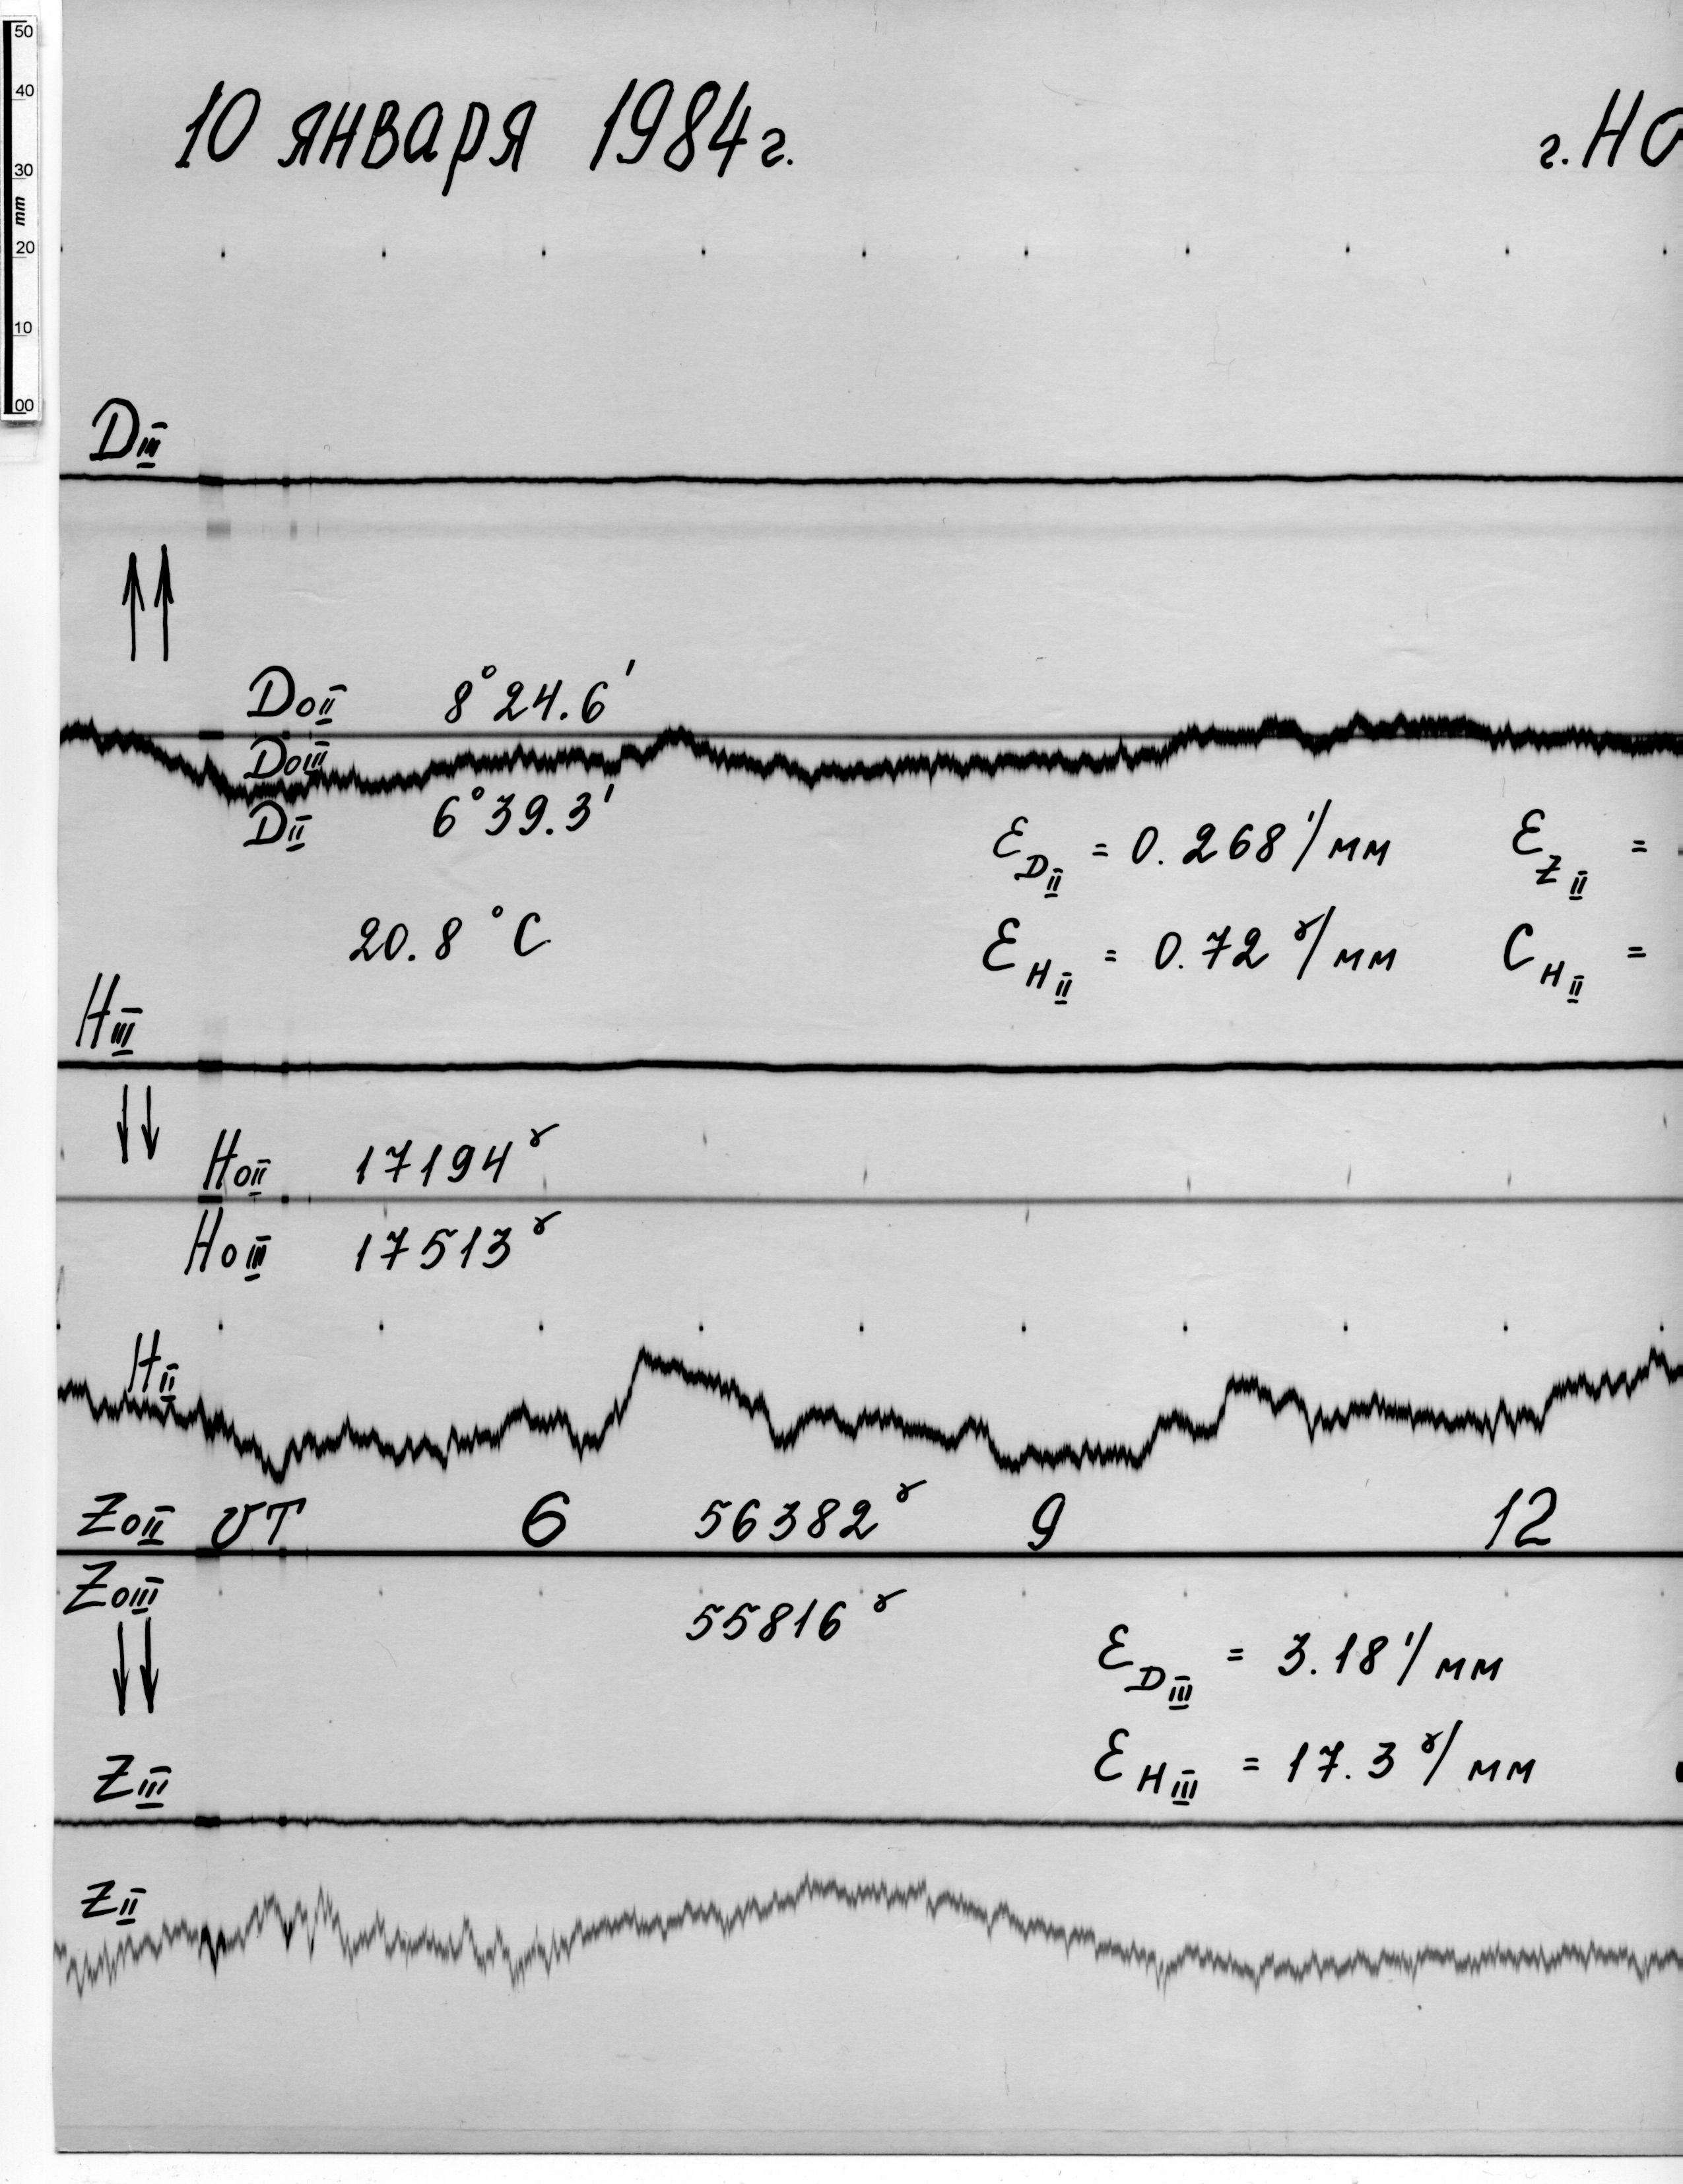 50
40
30
mm
20
10
00
10 января 1984г.
г. НО
DIII
DoII 8°24.6'
DoIII
DII 6°39.3'
εDII = 0.268'/мм
εZII =
20.8 °C
εHII = 0.72 γ/мм
CHII =
HIII
HoII 17194γ
HoIII 17513γ
HII
ZoII UT 6 56382γ 9 12
ZoIII 55816γ
εDIII = 3.18'/мм
εHIII = 17.3 γ/мм
ZIII
ZII